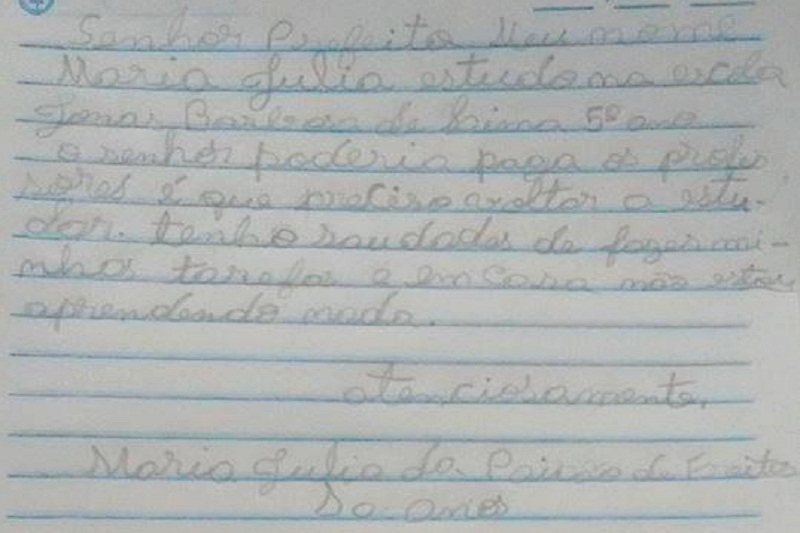 Senhor Prefeito, Meu nome
Maria Julia estudo na escola
Jonas Barbosa de Lima 5º ano
o senhor poderia paga os profes
sores é que preciso a voltar a estu-
dar. tenho saudades de fazer mi-
nhas tarefas e em casa não estou
aprendendo nada.
atenciosamente,
Maria Julia da Paixão de Freitas
10 anos